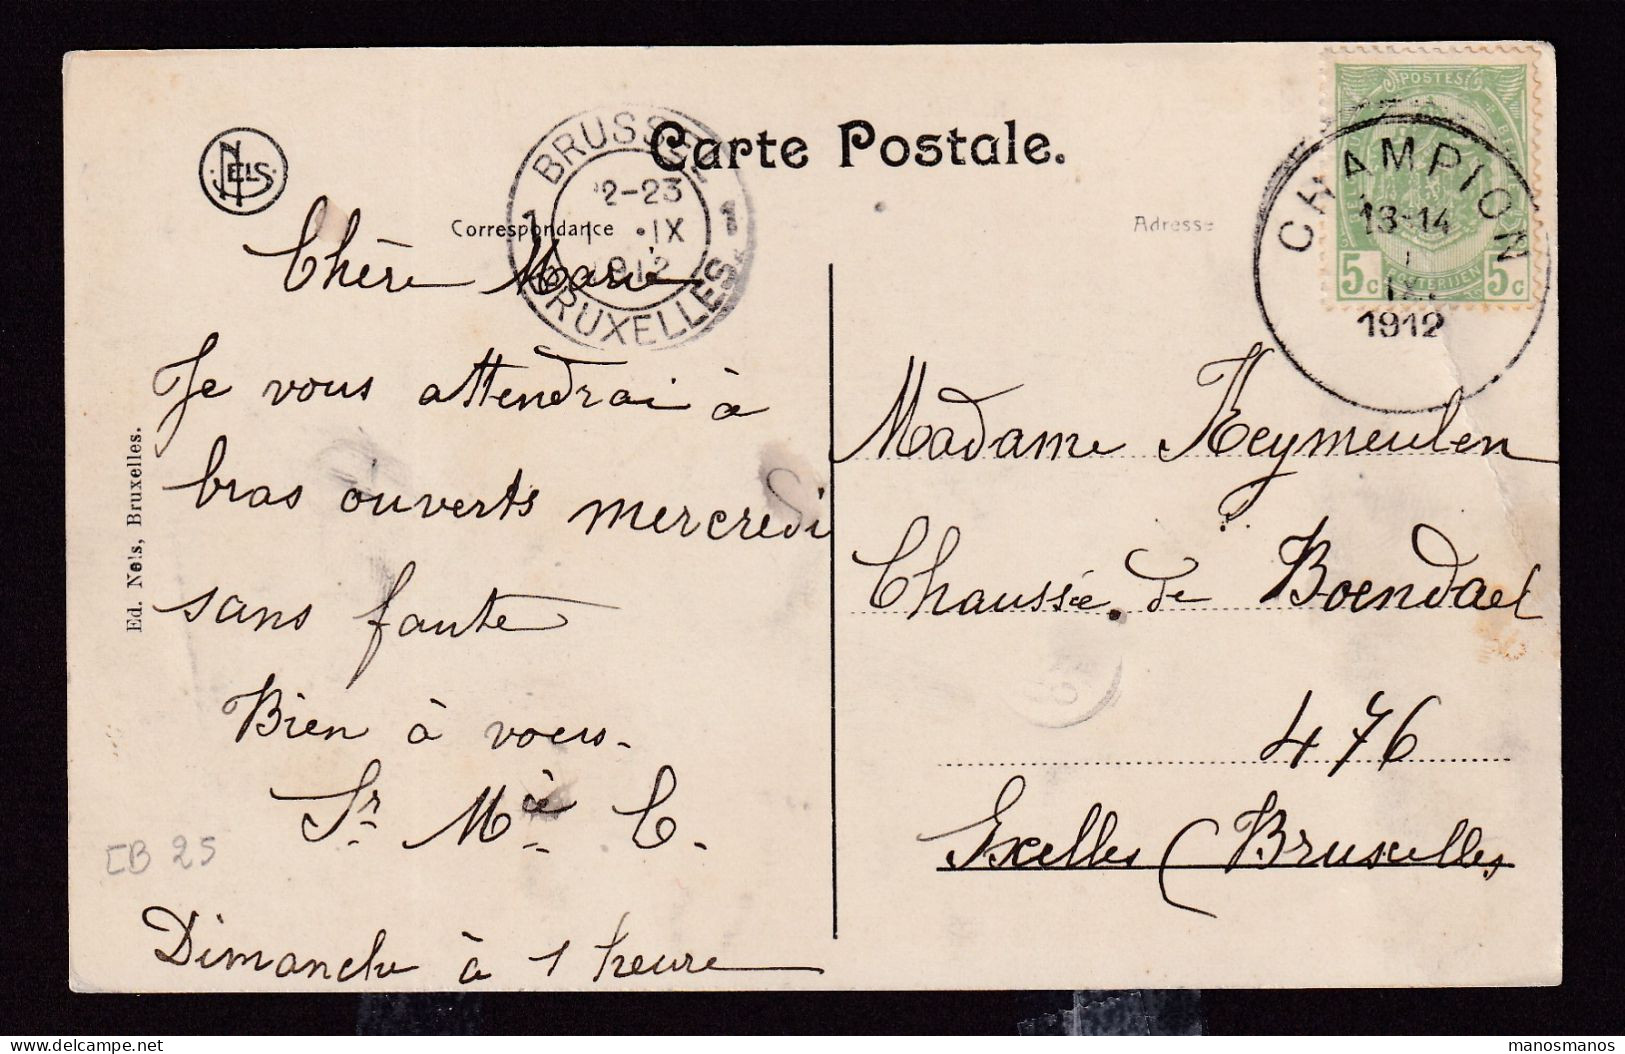 Carte Postale.
NELS
Correspondance
Adresse
BRUSSEL 1
2-23
1 ·IX
1912
1 BRUXELLES 1
POSTES
5c POSTERIJEN 5c
CHAMPION
13-14
1
IX
1912
Chère Marie
Je vous attendrai à
bras ouverts mercredi
sans faute
Bien à vous.
Sr. Mie. C.
Dimanche à 1 heure
Madame Keymeulen
Chaussée de Boendael
476
Ixelles (Bruxelles
Ed. Nels, Bruxelles.
CB 25
manosmanos